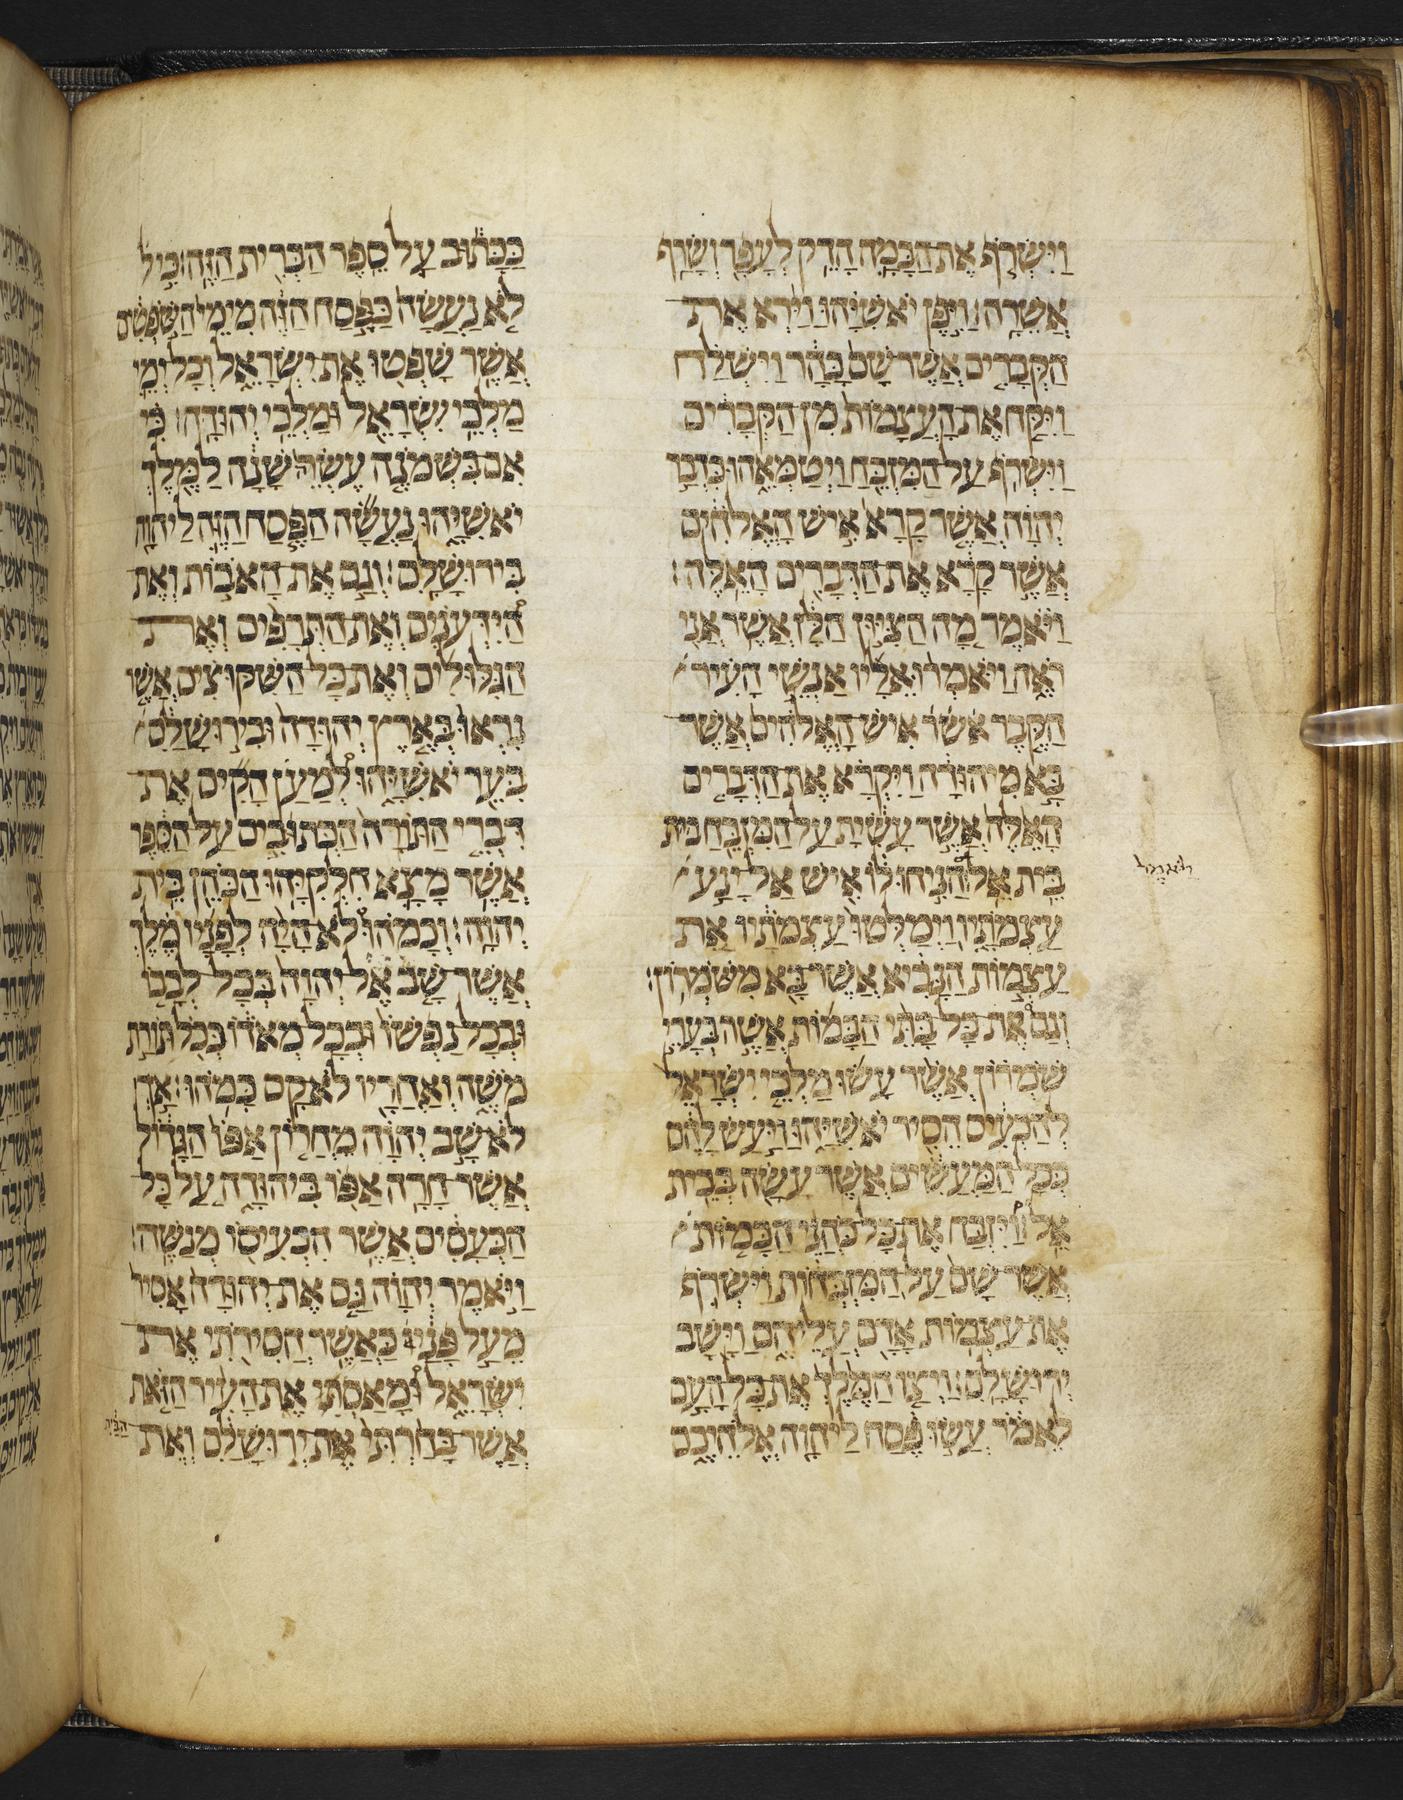 וַיִּשְׂרֹף אֶת הַבָּמָה הֵדַק לְעָפָר וְשָׂרַף
אֲשֵׁרָה׃ וַיִּפֶן יֹאשִׁיָּהוּ וַיַּרְא אֶת
הַקְּבָרִים אֲשֶׁר שָׁם בָּהָר וַיִּשְׁלַח
וַיִּקַּח אֶת הָעֲצָמוֹת מִן הַקְּבָרִים
וַיִּשְׂרֹף עַל הַמִּזְבֵּחַ וַיְטַמְּאֵהוּ כִּדְבַר
יְהוָה אֲשֶׁר קָרָא אִישׁ הָאֱלֹהִים
אֲשֶׁר קָרָא אֶת הַדְּבָרִים הָאֵלֶּה׃
וַיֹּאמֶר מָה הַצִּיּוּן הַלָּז אֲשֶׁר אֲנִי
רֹאֶה וַיֹּאמְרוּ אֵלָיו אַנְשֵׁי הָעִיר
הַקֶּבֶר אִישׁ הָאֱלֹהִים אֲשֶׁר
בָּא מִיהוּדָה וַיִּקְרָא אֶת הַדְּבָרִים
הָאֵלֶּה אֲשֶׁר עָשִׂיתָ עַל הַמִּזְבֵּחַ
בֵּית אֵל הַנִּיחוּ לוֹ אִישׁ אַל יָנַע
עַצְמֹתָיו וַיְמַלְּטוּ עַצְמֹתָיו אֵת
עַצְמוֹת הַנָּבִיא אֲשֶׁר בָּא מִשֹּׁמְרוֹן׃
וְגַם אֶת כָּל בָּתֵּי הַבָּמוֹת אֲשֶׁר בְּעָרֵי
שֹׁמְרוֹן אֲשֶׁר עָשׂוּ מַלְכֵי יִשְׂרָאֵל
לְהַכְעִיס הֵסִיר יֹאשִׁיָּהוּ וַיַּעַשׂ לָהֶם
כְּכָל הַמַּעֲשִׂים אֲשֶׁר עָשָׂה בְּבֵית
אֵל׃ וַיִּזְבַּח אֶת כָּל כֹּהֲנֵי הַבָּמוֹת
אֲשֶׁר שָׁם עַל הַמִּזְבְּחוֹת וַיִּשְׂרֹף
אֶת עַצְמוֹת אָדָם עֲלֵיהֶם וַיָּשָׁב
יְרוּשָׁלִָם׃ וַיְצַו הַמֶּלֶךְ אֶת כָּל הָעָם
לֵאמֹר עֲשׂוּ פֶסַח לַיהוָה אֱלֹהֵיכֶם
כַּכָּתוּב עַל סֵפֶר הַבְּרִית הַזֶּה׃ כִּי
לֹא נַעֲשָׂה כַּפֶּסַח הַזֶּה מִימֵי הַשֹּׁפְטִים
אֲשֶׁר שָׁפְטוּ אֶת יִשְׂרָאֵל וְכֹל יְמֵי
מַלְכֵי יִשְׂרָאֵל וּמַלְכֵי יְהוּדָה׃ כִּי
אִם בִּשְׁמֹנֶה עֶשְׂרֵה שָׁנָה לַמֶּלֶךְ
יֹאשִׁיָּהוּ נַעֲשָׂה הַפֶּסַח הַזֶּה לַיהוָה
בִּירוּשָׁלִָם׃ וְגַם אֶת הָאֹבוֹת וְאֶת
הַיִּדְּעֹנִים וְאֶת הַתְּרָפִים וְאֶת
הַגִּלּוּלִים וְאֵת כָּל הַשִּׁקּוּצִים אֲשֶׁר
נִרְאוּ בְּאֶרֶץ יְהוּדָה וּבִירוּשָׁלִַם
בִּעֵר יֹאשִׁיָּהוּ לְמַעַן הָקִים אֶת
דִּבְרֵי הַתּוֹרָה הַכְּתוּבִים עַל הַסֵּפֶר
אֲשֶׁר מָצָא חִלְקִיָּהוּ הַכֹּהֵן בֵּית
יְהוָה׃ וְכָמֹהוּ לֹא הָיָה לְפָנָיו מֶלֶךְ
אֲשֶׁר שָׁב אֶל יְהוָה בְּכָל לְבָבוֹ
וּבְכָל נַפְשׁוֹ וּבְכָל מְאֹדוֹ כְּכֹל תּוֹרַת
מֹשֶׁה וְאַחֲרָיו לֹא קָם כָּמֹהוּ׃ אַךְ
לֹא שָׁב יְהוָה מֵחֲרוֹן אַפּוֹ הַגָּדוֹל
אֲשֶׁר חָרָה אַפּוֹ בִּיהוּדָה עַל כָּל
הַכְּעָסִים אֲשֶׁר הִכְעִיסוֹ מְנַשֶּׁה׃
וַיֹּאמֶר יְהוָה גַּם אֶת יְהוּדָה אָסִיר
מֵעַל פָּנַי כַּאֲשֶׁר הֲסִירֹתִי אֶת
יִשְׂרָאֵל וּמָאַסְתִּי אֶת הָעִיר הַזֹּאת
אֲשֶׁר בָּחַרְתִּי אֶת יְרוּשָׁלִַם וְאֶת הַבַּיִת